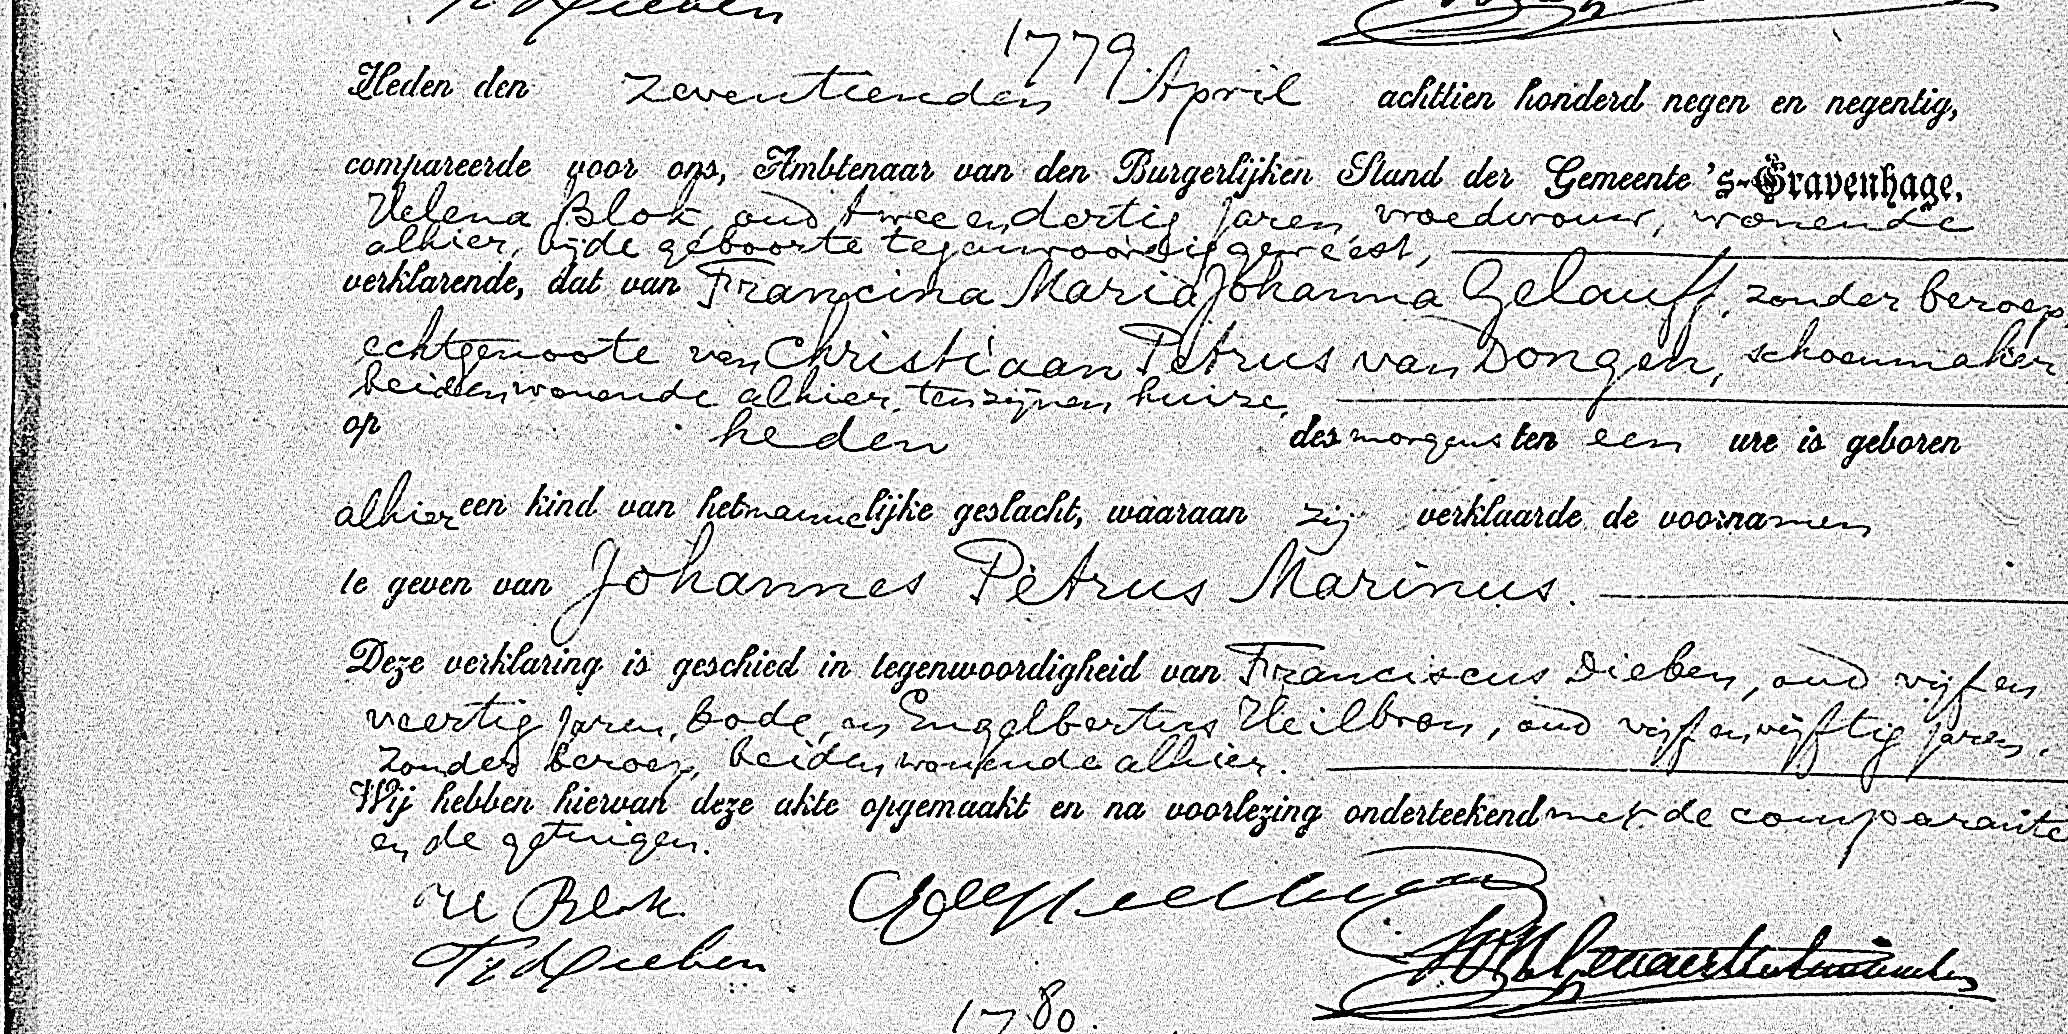 1779.
Heden den zeventienden April achttien honderd negen en negentig,
compareerde voor ons, Ambtenaar van den Burgerlijken Stand der Gemeente 's-Gravenhage.
Helena Blok, oud twee en dertig jaren, vroedvrouw, wonende
alhier, bij de geboorte tegenwoordig geweest,
verklarende, dat van Francina Maria Johanna Gelauff, zonder beroep
echtgenoote van Christiaan Petrus van Dongen, schoenmaker
beiden wonende alhier, ten zijnen huize,
op heden des morgens ten een ure is geboren
alhier een kind van het mannelijke geslacht, waaraan zij verklaarde de voornamen
te geven van Johannes Petrus Marinus.
Deze verklaring is geschied in tegenwoordigheid van Franciscus Dieben, oud vijf en
veertig jaren, bode, en Engelbertus Heilbron, oud vijf en vijftig jaren,
zonder beroep, beiden wonende alhier.
Wij hebben hiervan deze akte opgemaakt en na voorlezing onderteekend met de comparante
en de getuigen.
H Blok.
Fr Dieben
1780.